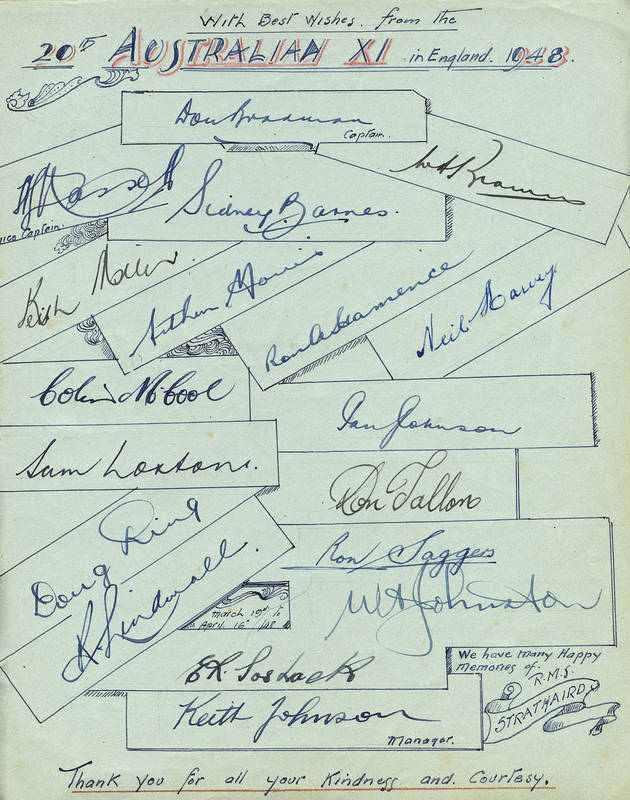 With Best Wishes. from the
20th AUSTRALIAN XI in England. 1948.
Don Bradman
Captain.
W A Brown
A L Hassett
Vice Captain.
Sidney G. Barnes.
Keith Miller
Arthur Morris
Ron A Hamence
Neil Harvey
Colin McCool
Ian Johnson
Sam Loxton.
Don Tallon
Doug Ring
Ron Saggers
R R Lindwall.
W A Johnston
March 19th to
April 16th /48
E R. Toshack
We have many Happy
memories of.
R.M.S.
STRATHAIRD
Keith Johnson
Manager.
Thank you for all your Kindness and Courtesy.